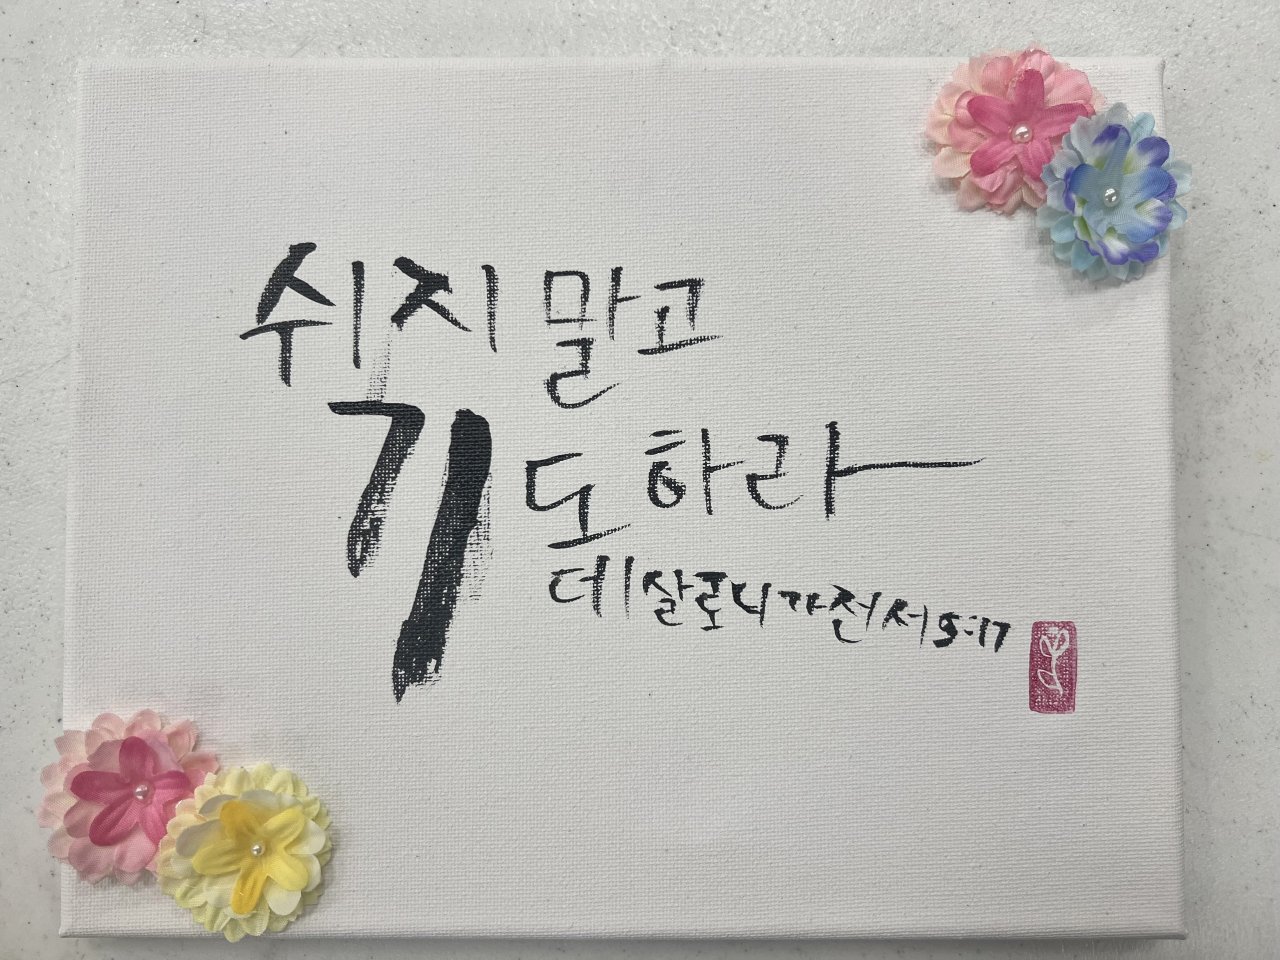 쉬지 말고
기도하라
데살로니가전서 5:17